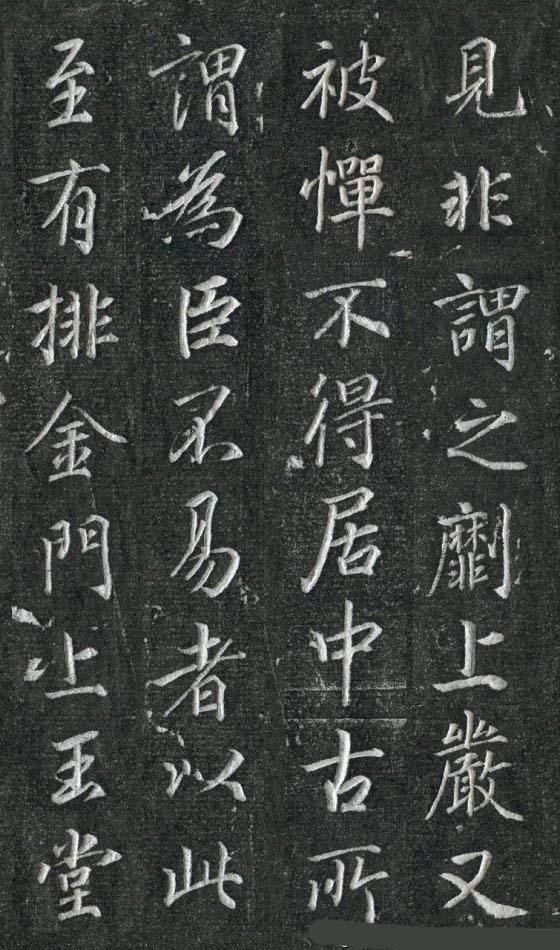 見非謂之劘上嚴又
被憚不得居中古所
謂為臣不易者以此
至有排金門上玉堂